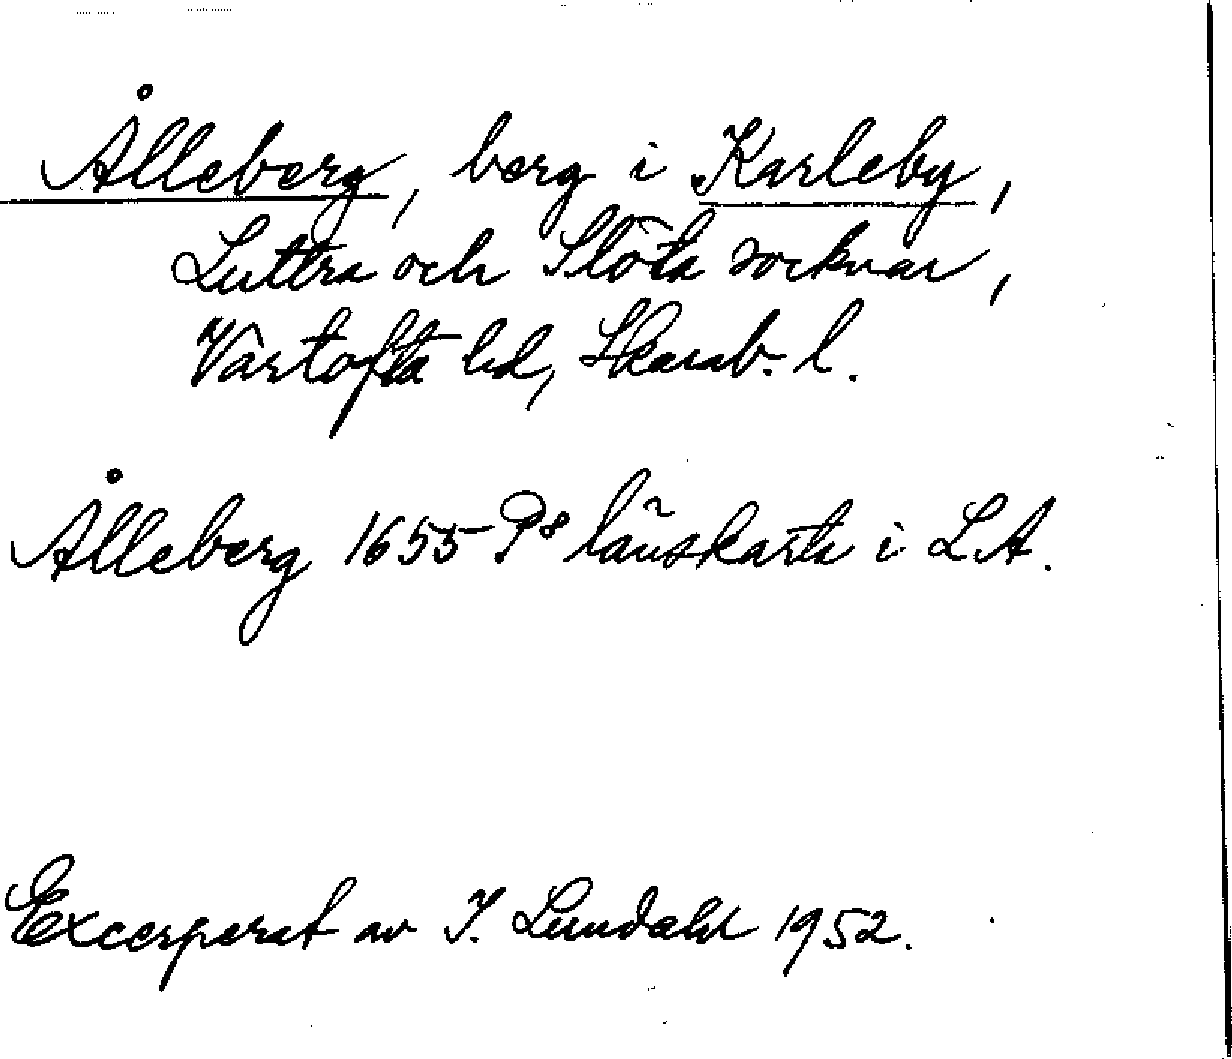 Ålleberg, berg i Karleby,
Luttra och Slöta socknar,
Vartofta hd, Skarab. l.
Ålleberg 1655 P8 länskarta i LA.
Excerperat av I. Lundahl 1952.